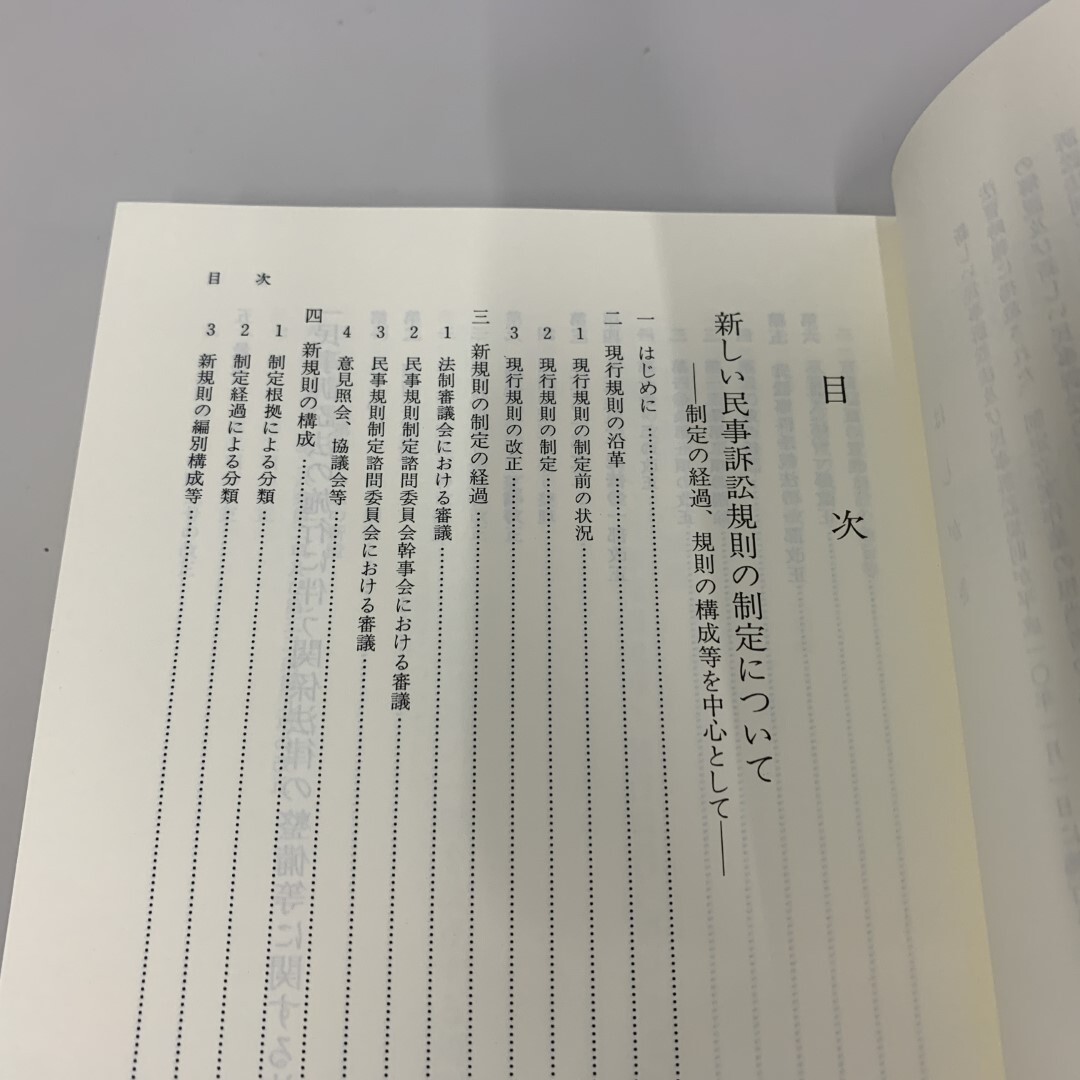 目　次
新しい民事訴訟規則の制定について
――制定の経過、規則の構成等を中心として――
一 はじめに
二 現行規則の沿革
1 現行規則の制定前の状況
2 現行規則の制定
3 現行規則の改正
三 新規則の制定の経過
1 法制審議会における審議
2 民事規則制定諮問委員会幹事会における審議
3 民事規則制定諮問委員会における審議
4 意見照会、協議会等
四 新規則の構成
1 制定根拠による分類
2 制定経過による分類
3 新規則の編別構成等
目　次